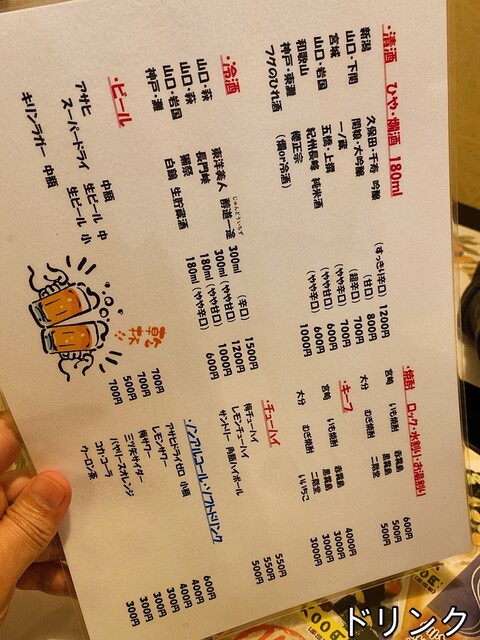 ・清酒 ひや・燗酒 180ml
新潟 久保田・千寿 吟醸 (すっきり辛口) 1200円
山口・下関 関娘・大吟醸 (甘口) 800円
宮城 一ノ蔵 (超辛口) 700円
山口・岩国 五橋・上撰 (やや辛口) 700円
和歌山 紀州長峰 純米酒 (やや甘口) 600円
神戸・東灘 櫻正宗 (やや辛口) 600円
フグのひれ酒 (燗or冷酒) 1000円
・冷酒
山口・萩 東洋美人 醇道一途 300ml (辛口) 1500円
じゅんどういちず
山口・萩 長門峡 300ml (やや甘口) 1200円
山口・岩国 獺祭 180ml (やや甘口) 1000円
神戸・灘 白鶴 生貯蔵酒 180ml (やや辛口) 600円
・ビール
アサヒ 中瓶 700円
スーパードライ 生ビール 中 700円
生ビール 小 500円
キリンラガー 中瓶 700円
乾杯!!
・焼酎 ロック・水割り・お湯割り
宮崎 いも焼酎 赤霧島 600円
黒霧島 500円
大分 むぎ焼酎 二階堂 500円
・キープ
宮崎 いも焼酎 赤霧島 4000円
黒霧島 3000円
大分 むぎ焼酎 二階堂 3000円
いいちこ 3000円
・チューハイ
梅チューハイ 550円
レモンチューハイ 550円
サントリー 角瓶ハイボール 500円
・ノンアルコール・ソフトドリンク
アサヒドライゼロ 小瓶 600円
レモンサワー 400円
梅サワー 400円
三ツ矢サイダー 300円
バヤリースオレンジ 300円
コカ・コーラ 300円
ウーロン茶 300円
ドリンク